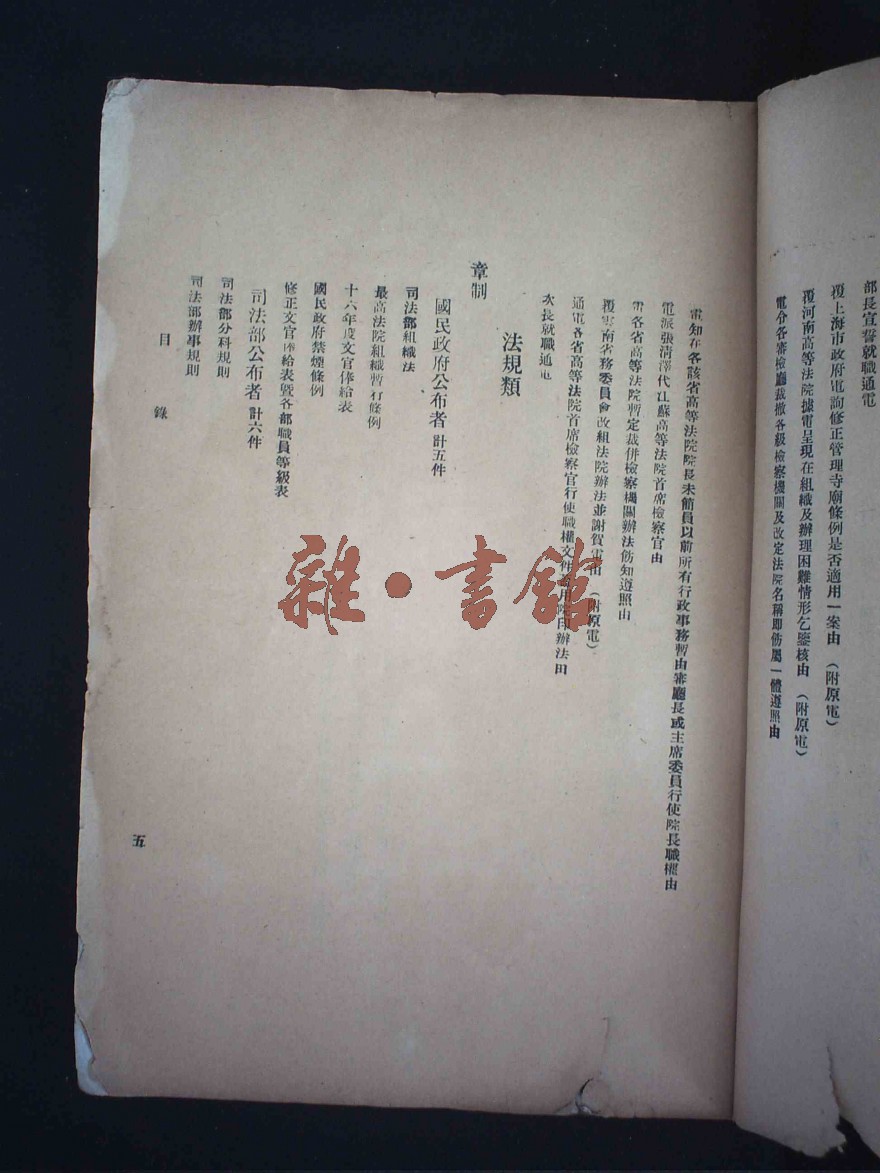 部長宣誓就職通電
覆上海市政府電詢修正管理寺廟條例是否適用一案由（附原電）
覆河南高等法院據電呈現在組織及辦理困難情形乞鑒核由（附原電）
電令各審檢廳裁撤各級檢察機關及改定法院名稱卽飭屬一體遵照由
電知在各該省高等法院院長未簡員以前所有行政事務暫由審廳長或主席委員行使院長職權由
電派張清澤代江蘇高等法院首席檢察官由
電各省高等法院暫定裁併檢察機關辦法飭知遵照由
覆雲南省務委員會改組法院辦法並謝賀電由（附原電）
通電各省高等法院首席檢察官行使職權文件用院印辦法由
次長就職通電
法規類
章制
國民政府公布者 計五件
司法部組織法
最高法院組織暫行條例
十六年度文官俸給表
國民政府禁煙條例
修正文官俸給表曁各部職員等級表
司法部公布者 計六件
司法部分科規則
司法部辦事規則
目錄
五
雜·書館